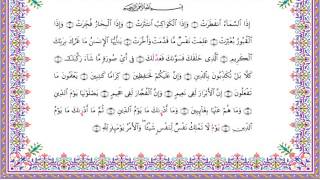 بسم الله الرحمن الرحيم
إِذَا ٱلسَّمَآءُ ٱنفَطَرَتۡ ۝ وَإِذَا ٱلۡكَوَاكِبُ ٱنتَثَرَتۡ ۝ وَإِذَا ٱلۡبِحَارُ فُجِّرَتۡ ۝ وَإِذَا
ٱلۡقُبُورُ بُعۡثِرَتۡ ۝ عَلِمَتۡ نَفۡسٞ مَّا قَدَّمَتۡ وَأَخَّرَتۡ ۝ يَٰٓأَيُّهَا ٱلۡإِنسَٰنُ مَا غَرَّكَ بِرَبِّكَ
ٱلۡكَرِيمِ ۝ ٱلَّذِي خَلَقَكَ فَسَوَّىٰكَ فَعَدَلَكَ ۝ فِيٓ أَيِّ صُورَةٖ مَّا شَآءَ رَكَّبَكَ ۝
كَلَّا بَلۡ تُكَذِّبُونَ بِٱلدِّينِ ۝ وَإِنَّ عَلَيۡكُمۡ لَحَٰفِظِينَ ۝ كِرَامٗا كَٰتِبِينَ ۝ يَعۡلَمُونَ مَا
تَفۡعَلُونَ ۝ إِنَّ ٱلۡأَبۡرَارَ لَفِي نَعِيمٖ ۝ وَإِنَّ ٱلۡفُجَّارَ لَفِي جَحِيمٖ ۝ يَصۡلَوۡنَهَا يَوۡمَ ٱلدِّينِ
۝ وَمَا هُمۡ عَنۡهَا بِغَآئِبِينَ ۝ وَمَآ أَدۡرَىٰكَ مَا يَوۡمُ ٱلدِّينِ ۝ ثُمَّ مَآ أَدۡرَىٰكَ مَا يَوۡمُ
ٱلدِّينِ ۝ يَوۡمَ لَا تَمۡلِكُ نَفۡسٞ لِّنَفۡسٖ شَيۡـٔٗاۖ وَٱلۡأَمۡرُ يَوۡمَئِذٖ لِّلَّهِ ۝